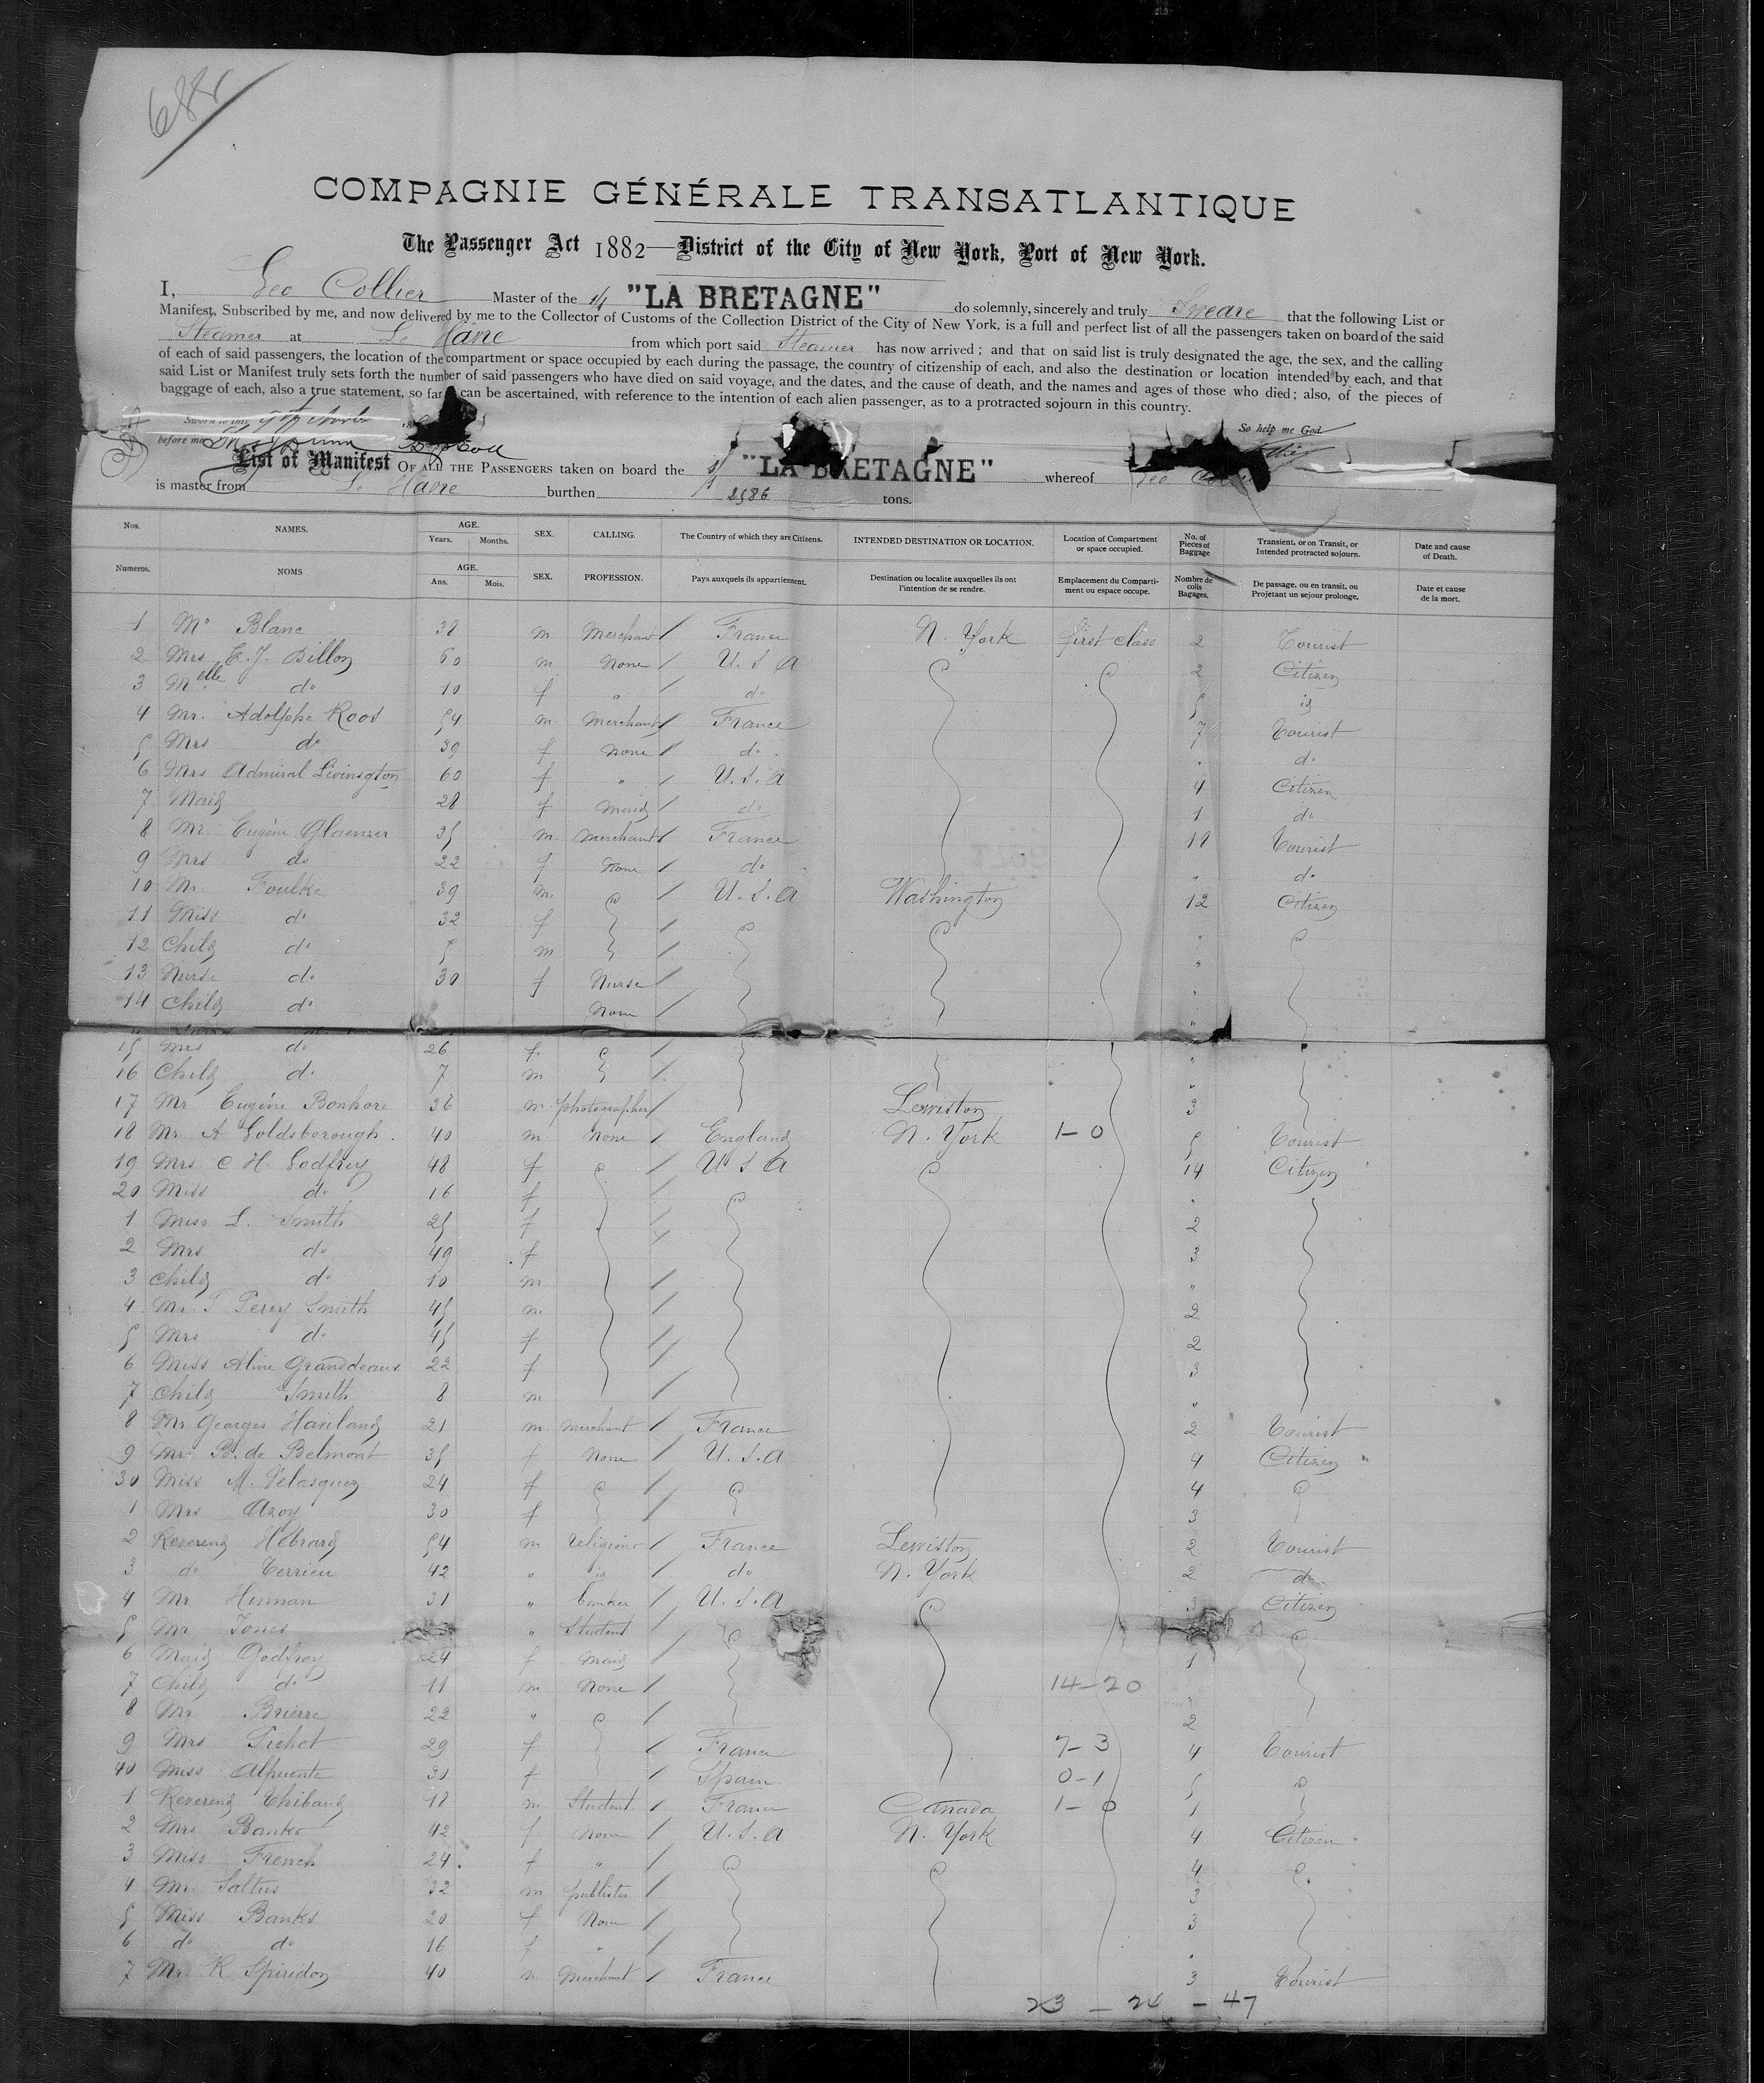 688
COMPAGNIE GÉNÉRALE TRANSATLANTIQUE
The Passenger Act 1882—District of the City of New York, Port of New York.
I, Geo Collier Master of the "LA BRETAGNE" do solemnly, sincerely and truly Sweare that the following List or
Manifest, Subscribed by me, and now delivered by me to the Collector of Customs of the Collection District of the City of New York, is a full and perfect list of all the passengers taken on board of the said
Steamer at Le Havre from which port said Steamer has now arrived; and that on said list is truly designated the age, the sex, and the calling
of each of said passengers, the location of the compartment or space occupied by each during the passage, the country of citizenship of each, and also the destination or location intended by each, and that
said List or Manifest truly sets forth the number of said passengers who have died on said voyage, and the dates, and the cause of death, and the names and ages of those who died; also, of the pieces of
baggage of each, also a true statement, so far can be ascertained, with reference to the intention of each alien passenger, as to a protracted sojourn in this country.
Sworn to this
So help me God.
before me
List of Manifest OF ALL THE PASSENGERS taken on board the "LA BRETAGNE" whereof Geo
is master from Le Havre burthen 2986 tons.
Nos. NAMES. AGE. Years. Months. SEX. CALLING. The Country of which they are Citizens. INTENDED DESTINATION OR LOCATION. Location of Compartment or space occupied. No. of Pieces of Baggage Transient, or on Transit, or Intended protracted sojourn. Date and cause of Death.
Numeros. NOMS AGE. Ans. Mois. SEX. PROFESSION. Pays auxquels ils appartiennent. Destination ou localite auxquelles ils ont l'intention de se rendre. Emplacement du Compartiment ou espace occupe. Nombre de colis Bagages. De passage, ou en transit, ou Projetant un sejour prolonge. Date et cause de la mort.
1 Mr Blanc 38 m Merchant / France N. York first class 2 Tourist
2 Mrs E. J. Dillon 60 m None / U.S.A 2 Citizen
3 Melle do 10 f " / do 5 id
4 Mr. Adolphe Roos 54 m Merchant / France 7 Tourist
5 Mrs do 39 f None / do " do
6 Mrs Admiral Livinsgton 60 f " / U.S.A 4 Citizen
7 Maid 28 f Maid / do 1 do
8 Mr. Eugène Glaenzer 35 m. Merchant / France 18 Tourist
9 Mrs do 22 f None / do " do
10 Mr. Foulke 39 m. / U.S.A Washington 12 Citizen
11 Miss do 32 f "
12 Child do 5 m "
13 Nurse do 30 f Nurse "
14 Child do None "
15 Mrs do 26 f. / "
16 Child do 7 m / "
17 Mr Eugéne Bonhore 36 m. photographer / Lewiston 3
18 Mr. A Goldsborough. 40 m None / England N. York 1-0 5 Tourist
19 Mrs C H. Godfrey 48 f / U S A 14 Citizen
20 Miss do 16 f / "
1 Miss L. Smith 25 f / 2
2 Mrs do 49 f 3
3 Child do 10 m / "
4 Mr. T Percy Smith 45 m. / 2
5 Mrs do 45 f / 2
6 Miss Aline Granddeaux 22 f / 3
7 Child Smith 8 m / "
8 Mr. Georges Haviland 21 m. Merchant / France 2 Tourist
9 Mr. B. de Belmont 35 f None / U.S.A 4 Citizen "
30 Miss M. Velasquez 24 f / 4
1 Mrs Azoy 30 f / 3
2 Reverend Hébrard 54 m religious / France Lewiston 2 Tourist
3 do Terrien 42 " id / do N. York 2 do
4 Mr Hinman 31 " banker / U.S.A 3 Citizen
5 Mr Jones " Student
6 Maid Godfrey 24 f Maid / 1
7 Child do 11 m None / 14-20
8 Mr Brierre 22 " / 2
9 Mrs Pichot 29 f / France 7-3 4 Tourist
40 Miss Alpuente 30 f / Spain 0-1 5
1 Reverend Thibaud 48 m. Student / France Canada 1-0 1
2 Mrs Banks 42 f None / U.S.A N. York 4 Citizen
3 Miss French 24. f " / 4
4 Mr. Saltus 32 m publister / 3
5 Miss Banks 20 f None / 3
6 do do 16 f " / "
7 Mr. K Spiridon 40 m Merchant / France 3 Tourist
23 - 24 - 47